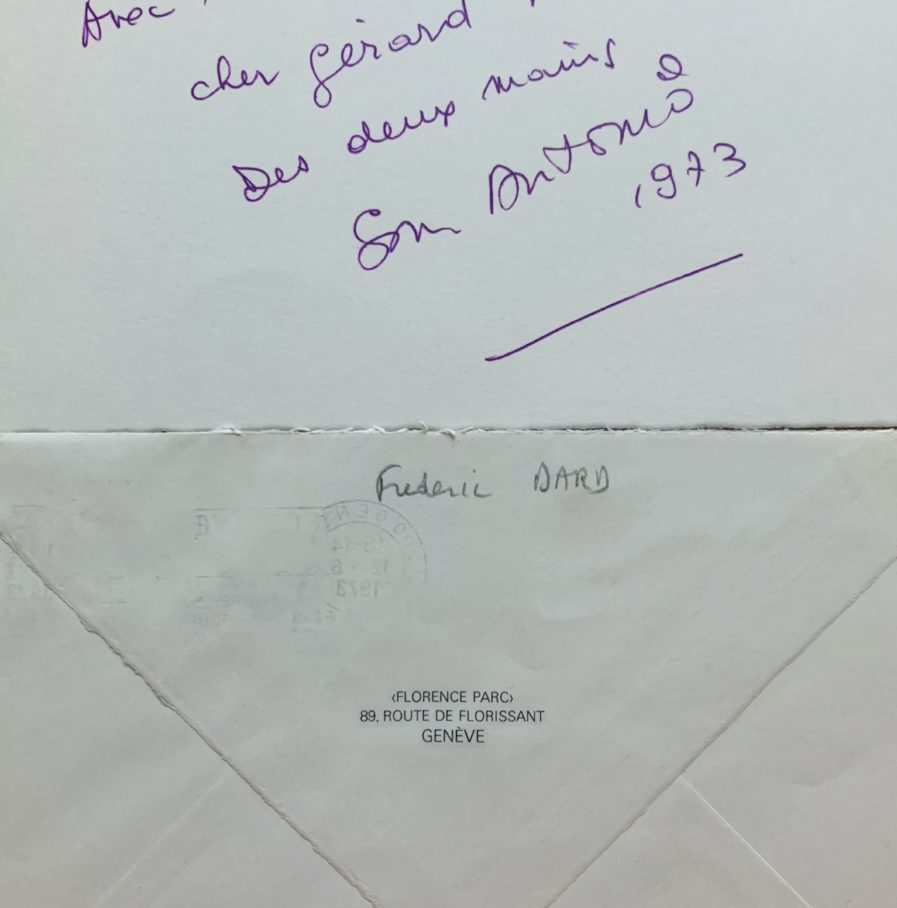 Avec
cher Gérard
Des deux mains
San Antonio
1973
Frederic DARD
GENÈVE
13-14
12 - 6
1973
‹FLORENCE PARC›
89, ROUTE DE FLORISSANT
GENÈVE